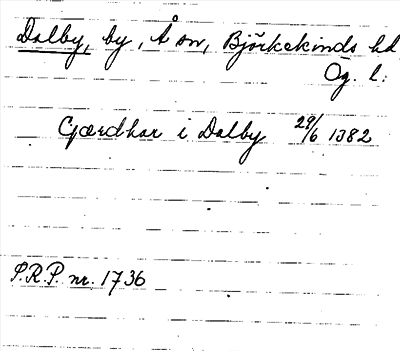 Dalby, by, Å sn, Björkekinds hd
Ög. l:
Gærdhar i Dalby 29/6 1382
S.R.P. nr. 1736